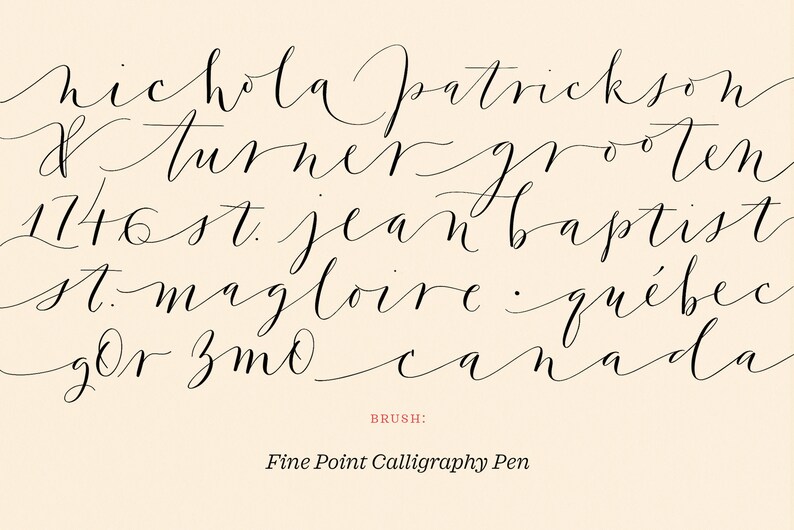 nichola patrickson
& turner grooten
1746 st. jean baptist
st. magloire · québec
g0r 3m0 canada
BRUSH:
Fine Point Calligraphy Pen